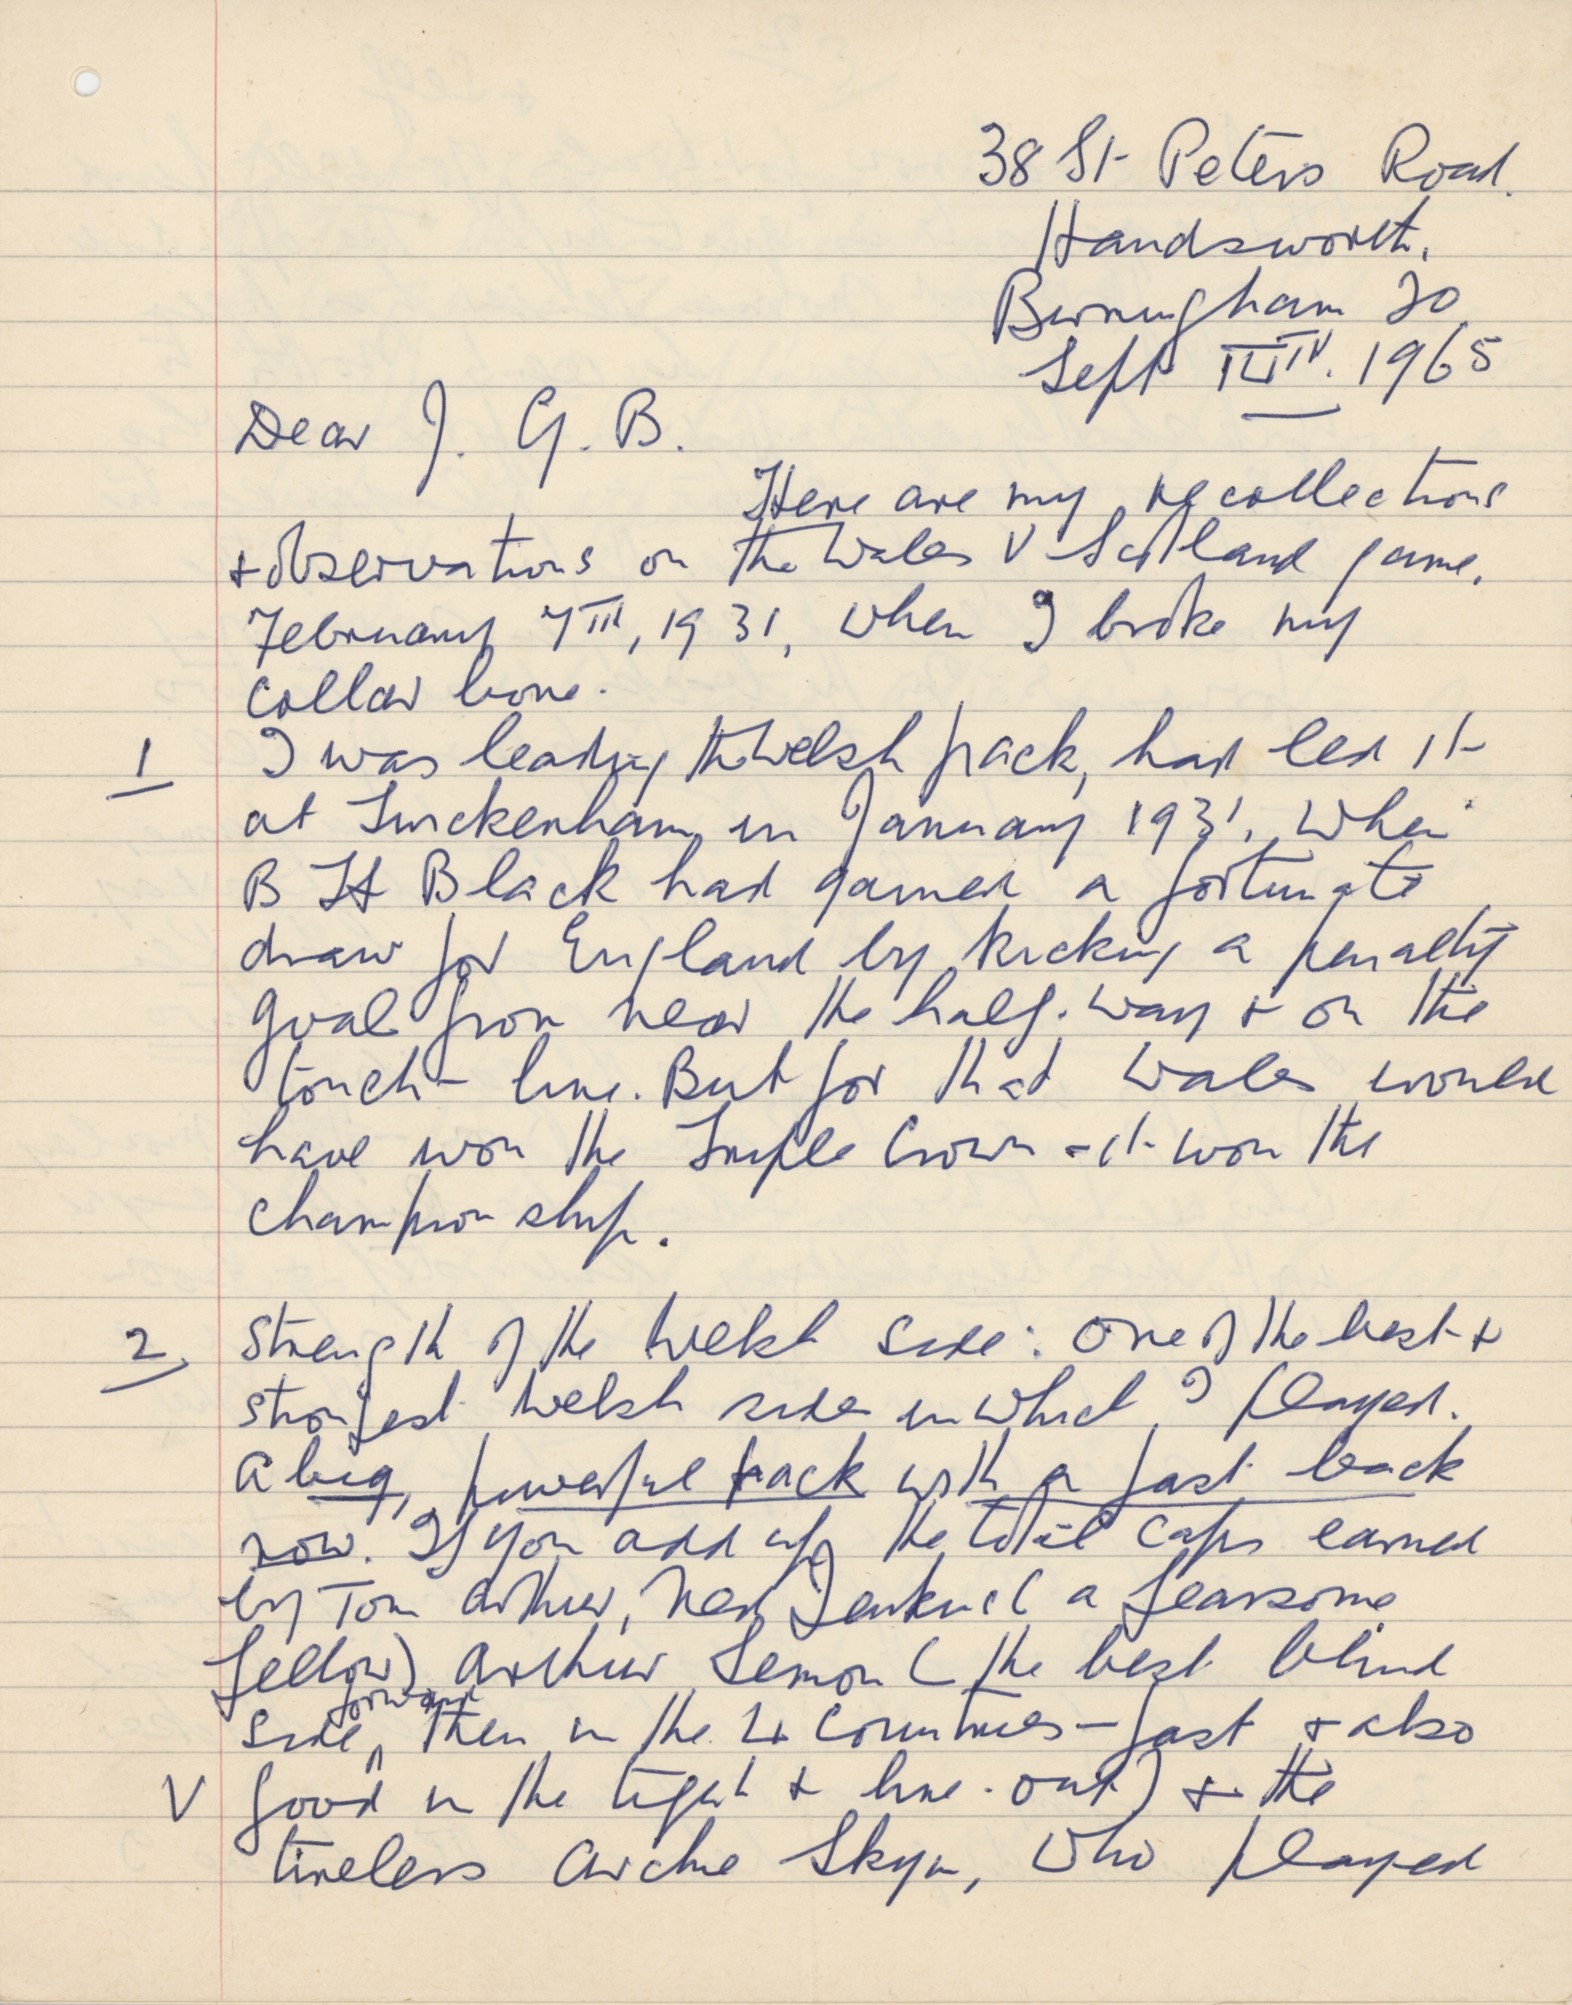 38 St Peters Road.
Handsworth.
Birmingham 20
Sept 1965
Dear J. G. B.
Here are my recollections
+ observations on the Wales V Scotland game.
February 7TH, 1931, when I broke my
collar bone.
1 I was leading the Welsh pack, had led it
at Twickenham in January 1931. When
B H Black had gained a fortunate
draw for England by kicking a penalty
goal from near the half-way + on the
touch-line. But for that Wales would
have won the Triple Crown - it won the
championship.
2 Strength of the Welsh side: One of the best +
strongest Welsh sides in which I played.
A big, powerful pack with a fast back
row. If you add up the total caps earned
by Tom Arthur, Ned Jenkins ( a fearsome
fellow) Arthur Lemon ( the best blind
side forward then in the 4 Countries - fast + also
V good in the tight + line-out) + the
tireless Archie Skym, who played